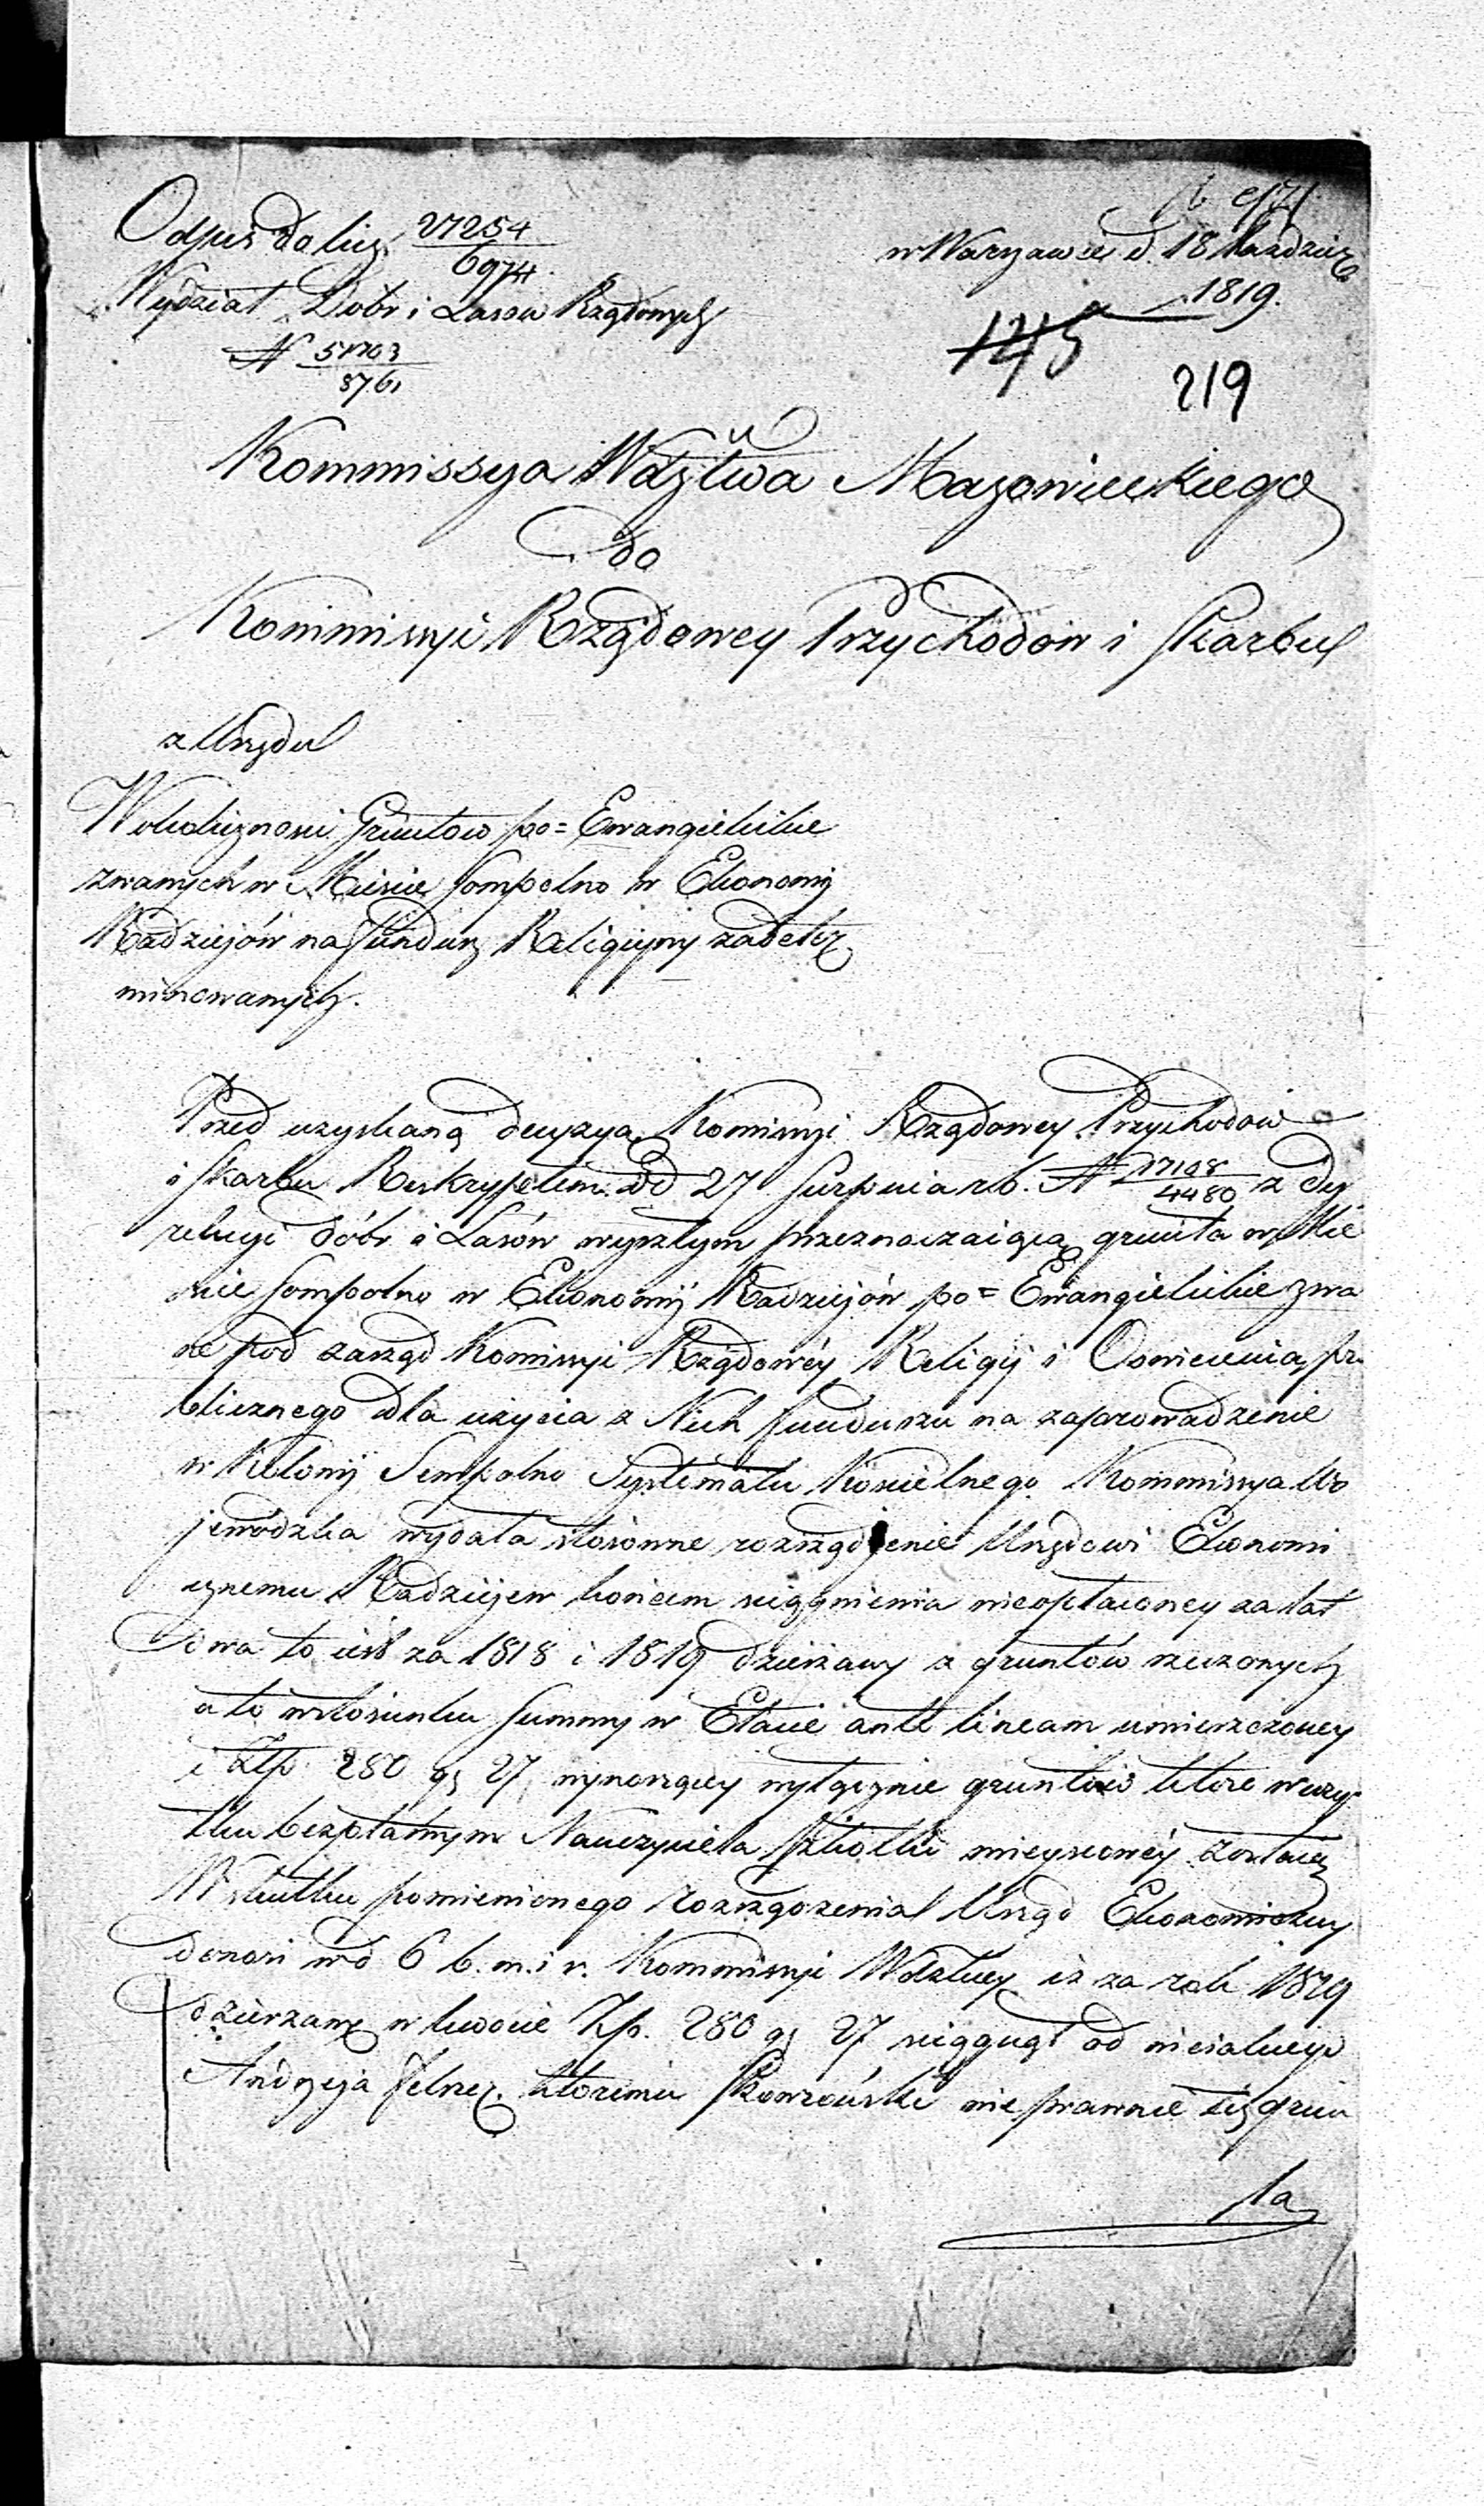 Odpis do licz. 27254/6974.
Wydział Dobr i Lasow Rządowych
N 51703/8761
w Warszawie d. 18 Paździer
1819.
145
219
Kommissya Wdztwa Mazowieckiego
do
Kommissyi Rządowey Przychodow i Skarbu
z Urzędu
W okoliczności Gruntow po= Ewangielickie
zwanych w Mieście Sompolno w Ekonomij
Radziejów na fundusz Religijny zadeter
minowanych.
Przed uzyskaną decyzyą Kommissyi Rządowey Przychodow
i Skarbu Reskryptem dd 27 Sierpnia r.b. N 17108/4480 z Dy
rekcyi Dóbr i Lasów wyszłym przeznaczaiącą grunta w Mie
ście Sompolno w Ekonomij Radziejów po= Ewangielickie zwa
ne pod zarząd Komissyi Rządowéy Religij i Oswiecenia pu
blicznego dla użycia z Nich funduszu na zaprowadzenie
w Kolonij Sempolno Systematu Koscielnego Kommissya Wo
jewódzka wydała stosowne rozrządzenie Urzędowi Ekonomi
cznemu Radziejew koncem sciągnienia nieopłaconey za lat
dwa to iest za 1818 i 1819 dzierżawy z gruntów rzeczonych
a to w stosunku Summy w Etacie ante lineam umieszczoney
i Złp. 280 gr 27 wynoszącey wyłącznie gruntów które w uży
tku bezpłatnym Nauczyciela Szkółki mieyscowéy zostaią
W skutku pomienionego rozrządzenia Urząd Ekonomiczny
donosi w d 6 b.m. i r. Kommissyi Wdzkiey iż za rok 1819
dzierzawę w kwocie Złp. 280 gr 27 sciągnął od nieiakiego
Andrzeja Felsrez. któremu Skowroński nie prawnie też grun
ta